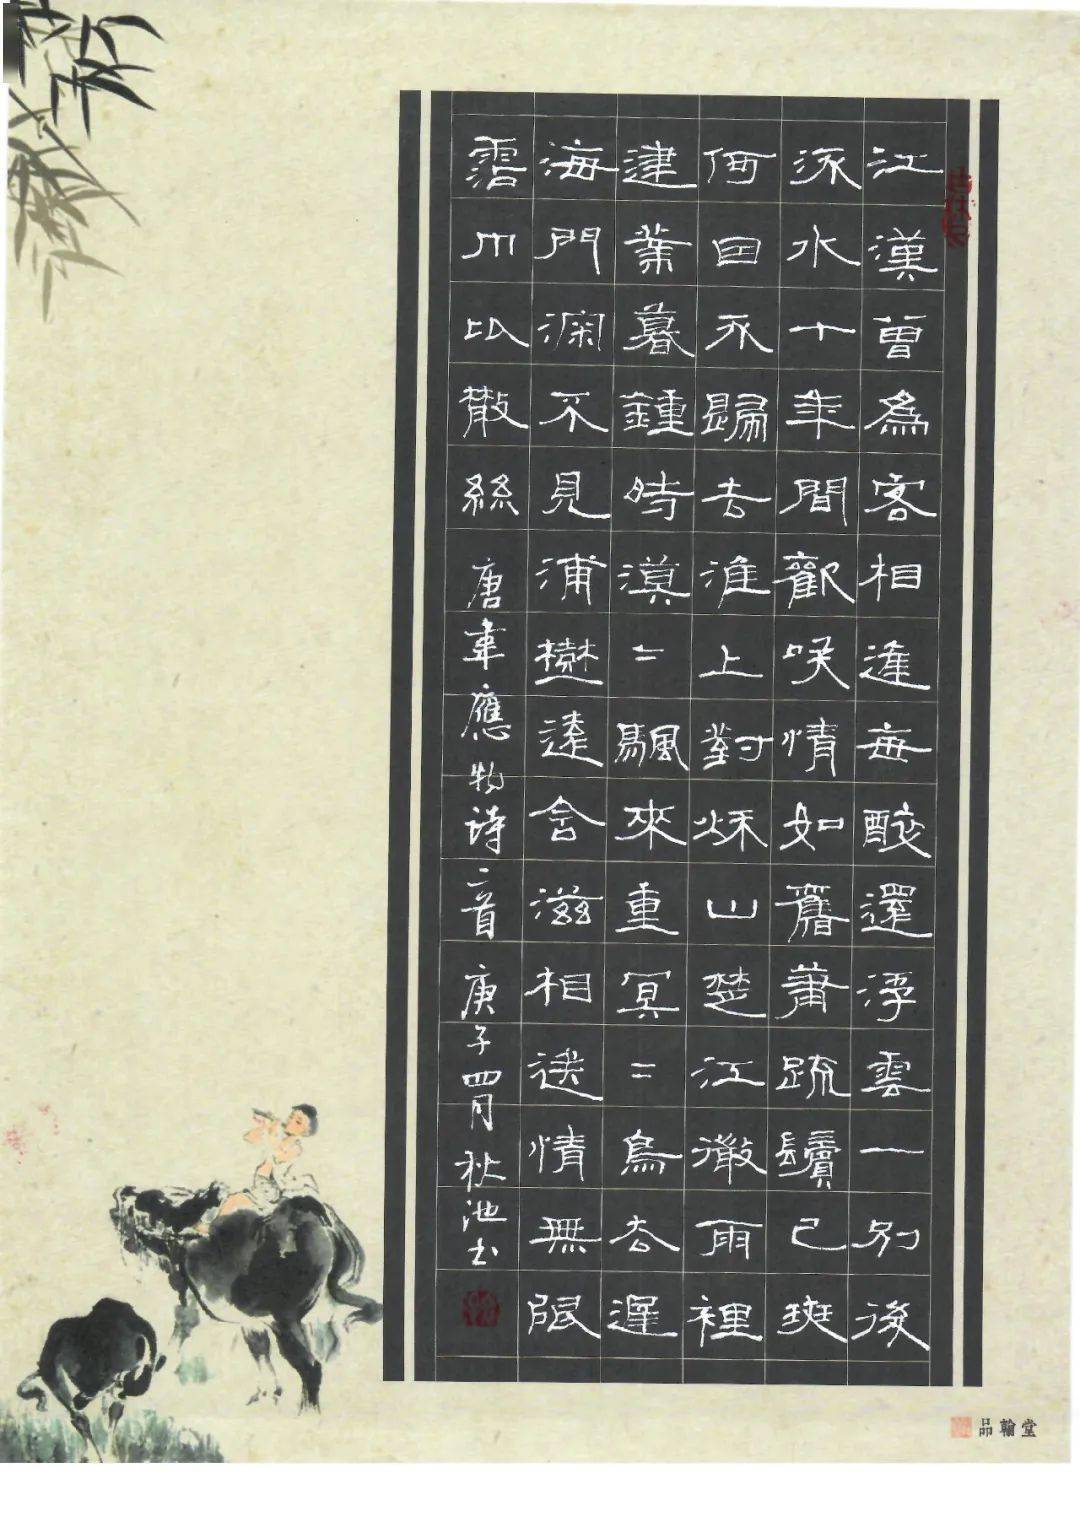 江漢曾爲客相逢每醉還浮雲一別後
流水十年間歡咲情如舊蕭疏鬢已斑
何因不歸去淮上對秋山楚江微雨裡
建業暮鍾時漠=颿來重冥=鳥去遲
海門深不見浦樹遠含滋相送情無限
霑巾比散絲 唐韋應物詩二首 庚子四月秋池书
品翰堂